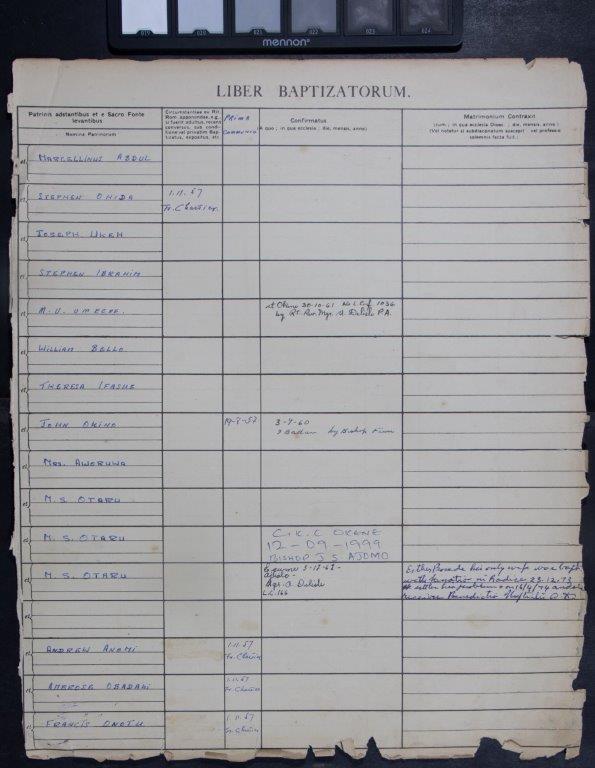 019 020 021 022 023 024
mennon
LIBER BAPTIZATORUM.
Patrinis adstantibus et e Sacro Fonte
levantibus
Nomina Patrinorum
Circumstantiae ex Rit.
Rom. apponendae, e.g.,
si fuerit adultus, recens
conversus, sub condi-
tione vel privatim Bap-
tizatus, expositus, etc.
PRIMA
COMMUNIO
Confirmatus
(A quo ; in qua ecclesia ; die, mensis, anno)
Matrimonium Contraxit
(cum ; in qua ecclesia Dioec. ; die, mensis, anno)
(Vel notatur si subdiaconatum suscepit vel professio
solemnis facta fuit.)
et MARCELLINUS ABDUL
et STEPHEN ONIDA 1.11.57
Fr. Chartier
et JOSEPH UKEH
et STEPHEN IBRAHIM
et M.U. at Okene 30-10-61 No L. Conf. 1036
by Rt Rev. Mgr. A. Delisle P.A.
et WILLIAM BELLO
et THERESA IFASUE
et JOHN OKINO 3-7-60
by Bishop Finn
et MRS. AWORUWA
et M.S. OTARU
et M.S. OTARU C.K.C OKENE
12-09-1999
BISHOP J S AJOMO
et M.S. OTARU 3-12-61-
Mgr. A. Delisle
L.C. 166
his only wife was bapt
23.12.73
et
et ANDREW ANOMI 1.11.57
Fr. Chartier
et AMBROSE OBADAKI 1.11.57
Fr. Chartier
et FRANCIS ONOTU 1.11.57
Fr. Chartier